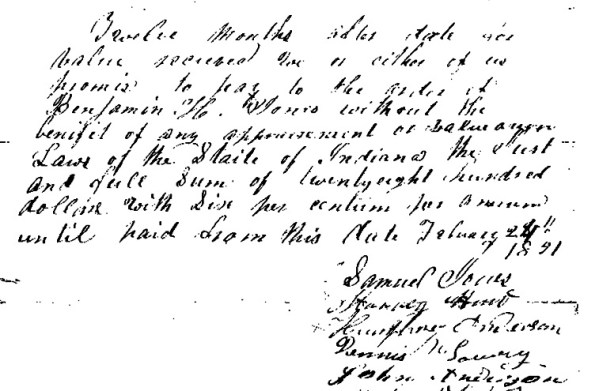 Twelve Months after date for
value received we or either of us
promis to pay to the order of
Benjamin H. Jones without the
benifit of any appraisement or valuayon
Laws of the Staite of Indiana the Just
and full Sum of twentyeight hundred
dollars with Six per centum per annum
until paid from this date February 24th
1891
Samuel Jones
Harvey Hunt
Humphrey Anderson
Dennis Lowry
John Anderson